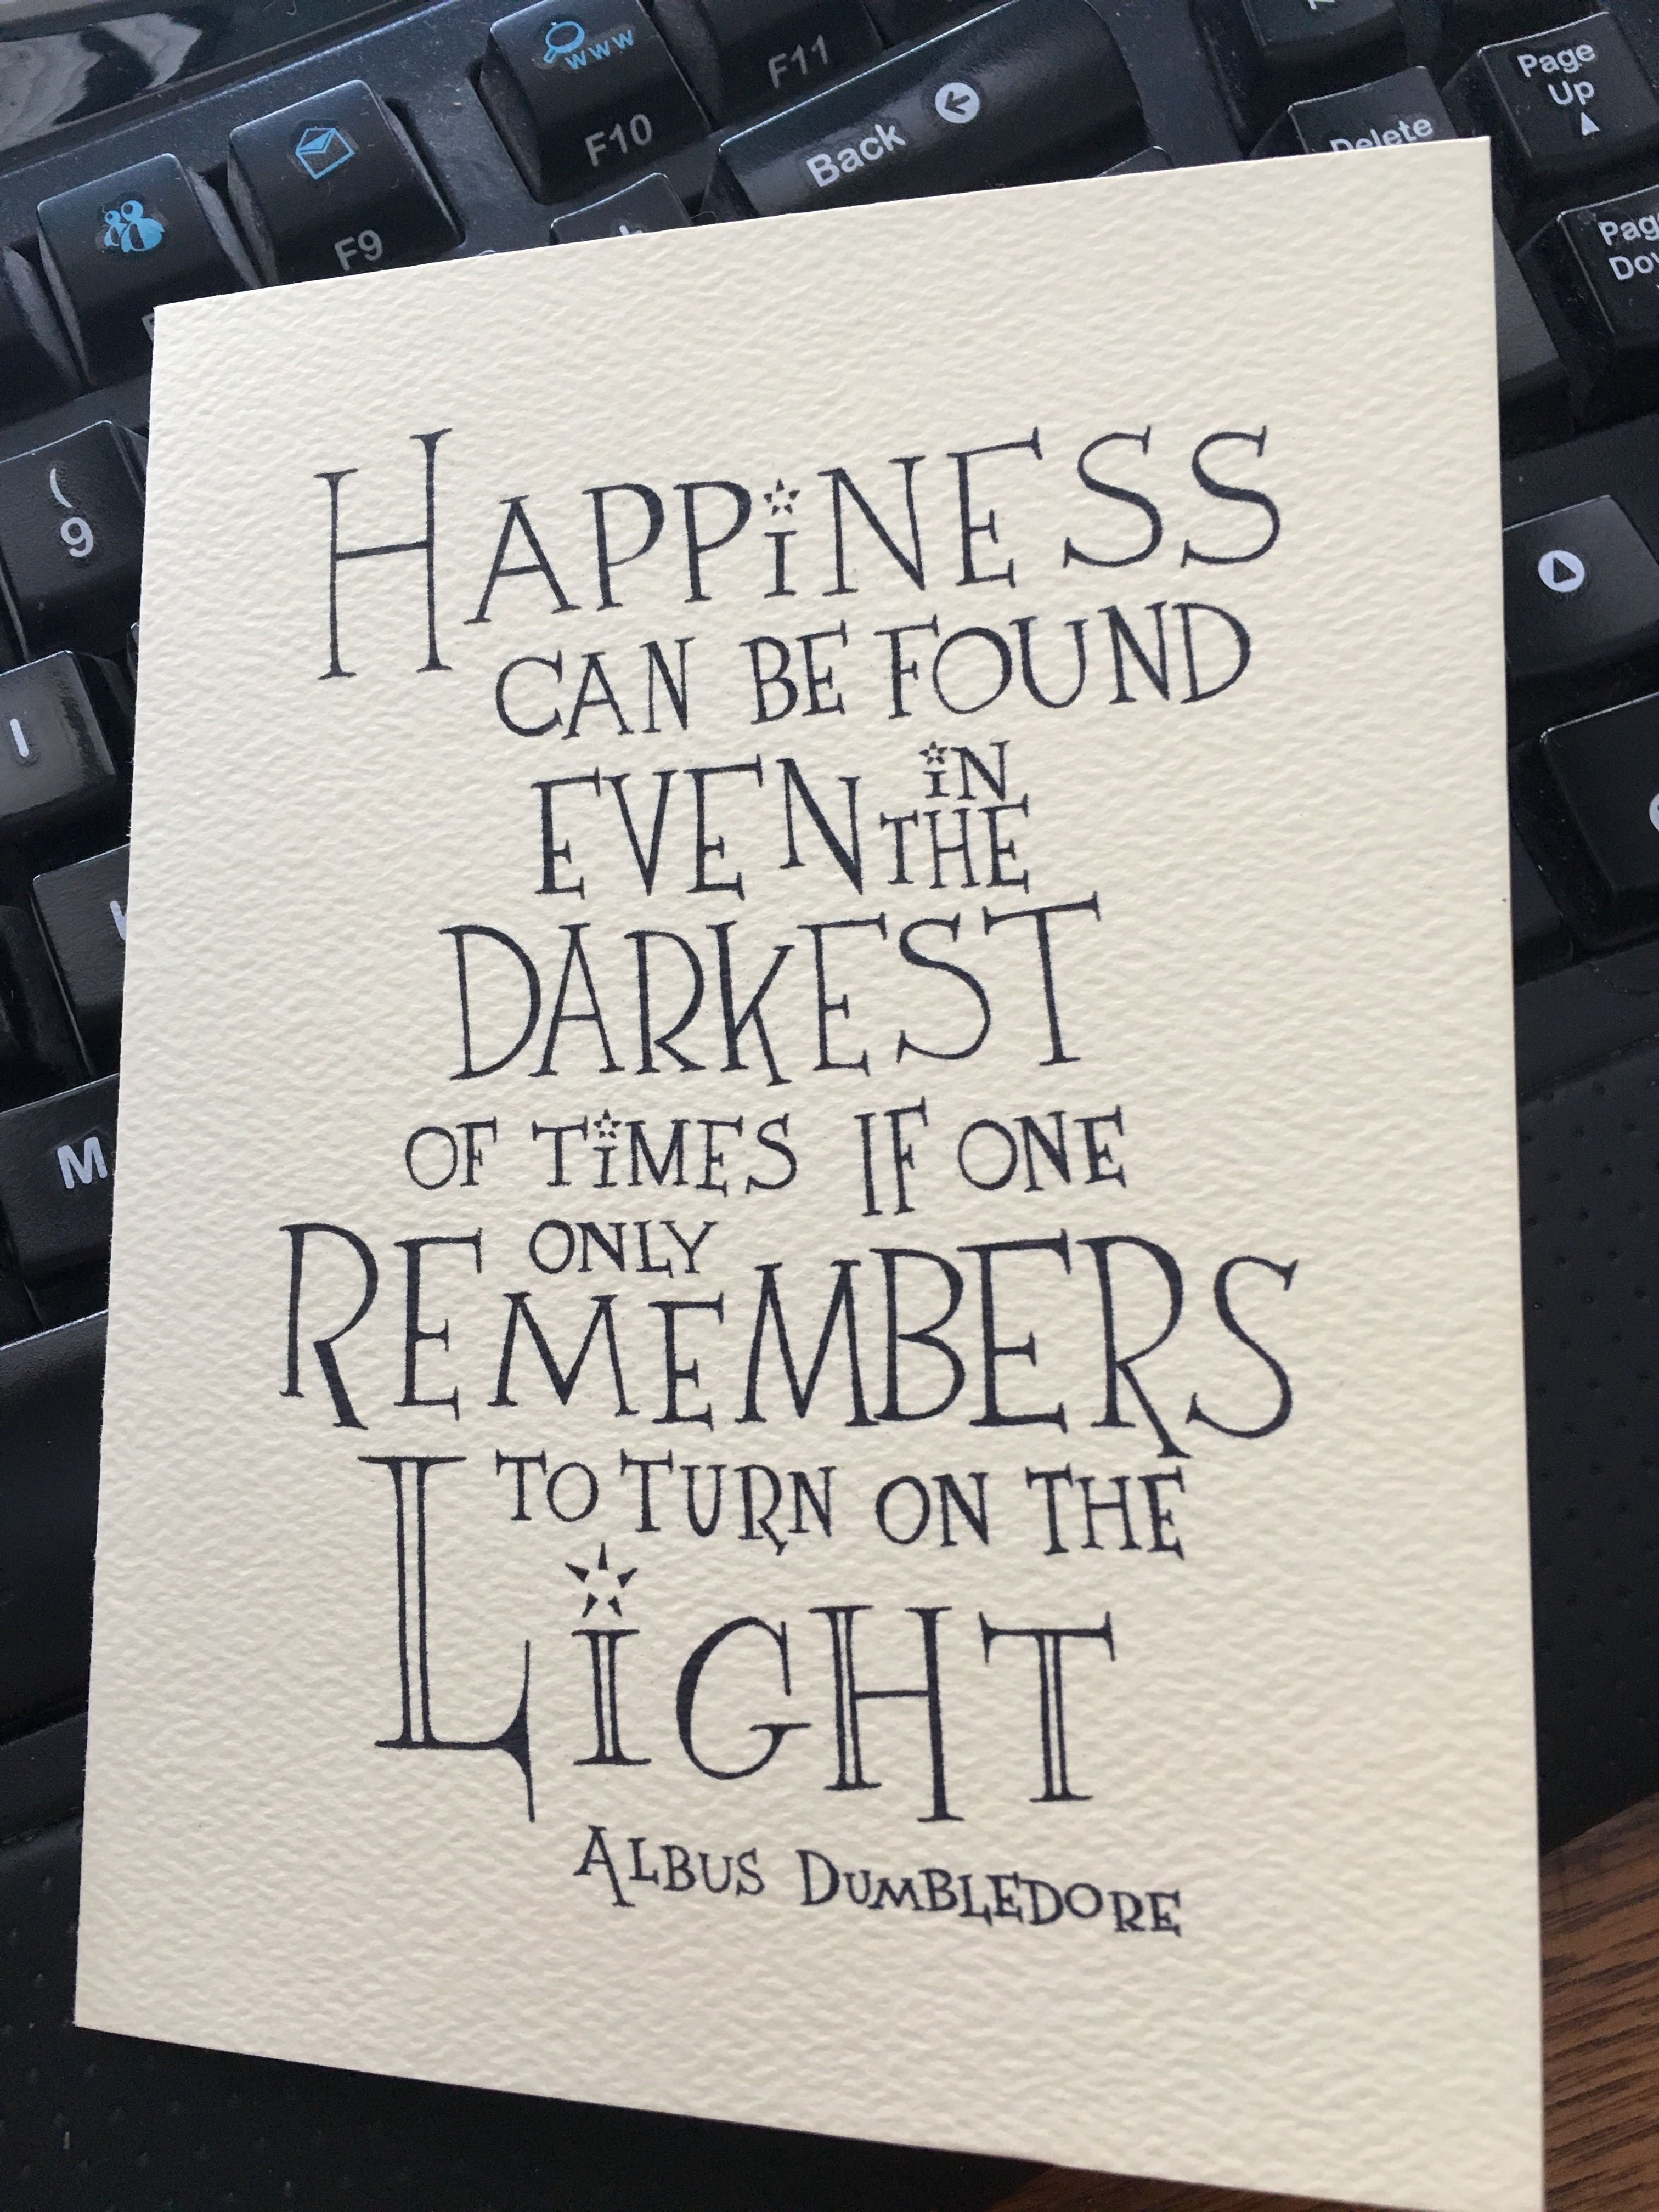 www
F11
Page
Up
F10
Back
Delete
F9
Page
(
9
I
M
HAPPiNESS
CAN BE FOUND
EVEN iN THE
DARKEST
OF TiMES IF ONE
ONLY
REMEMBERS
TO TURN ON THE
LiGHT
ALBUS DUMBLEDORE